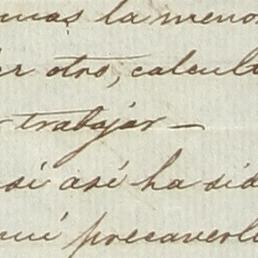 la menor
otro, calcul
trabajar —
si así ha sid
precaverl